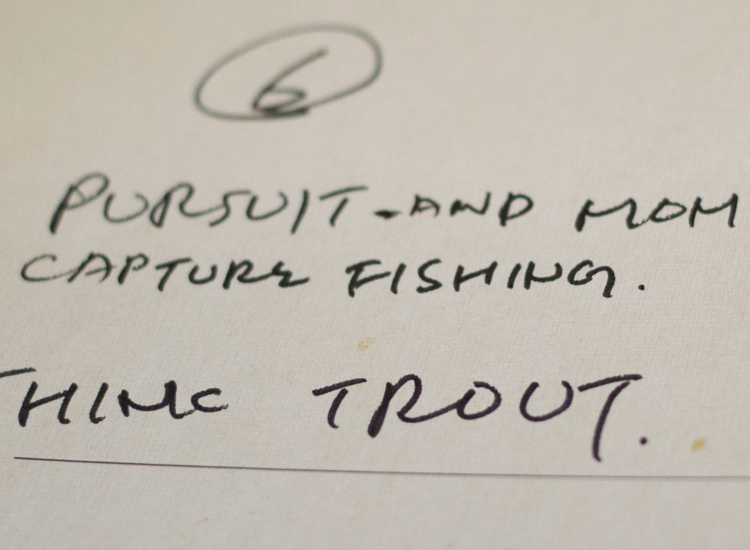 6
PURSUIT-AND MOM
CAPTURE FISHING.
THINK TROUT.